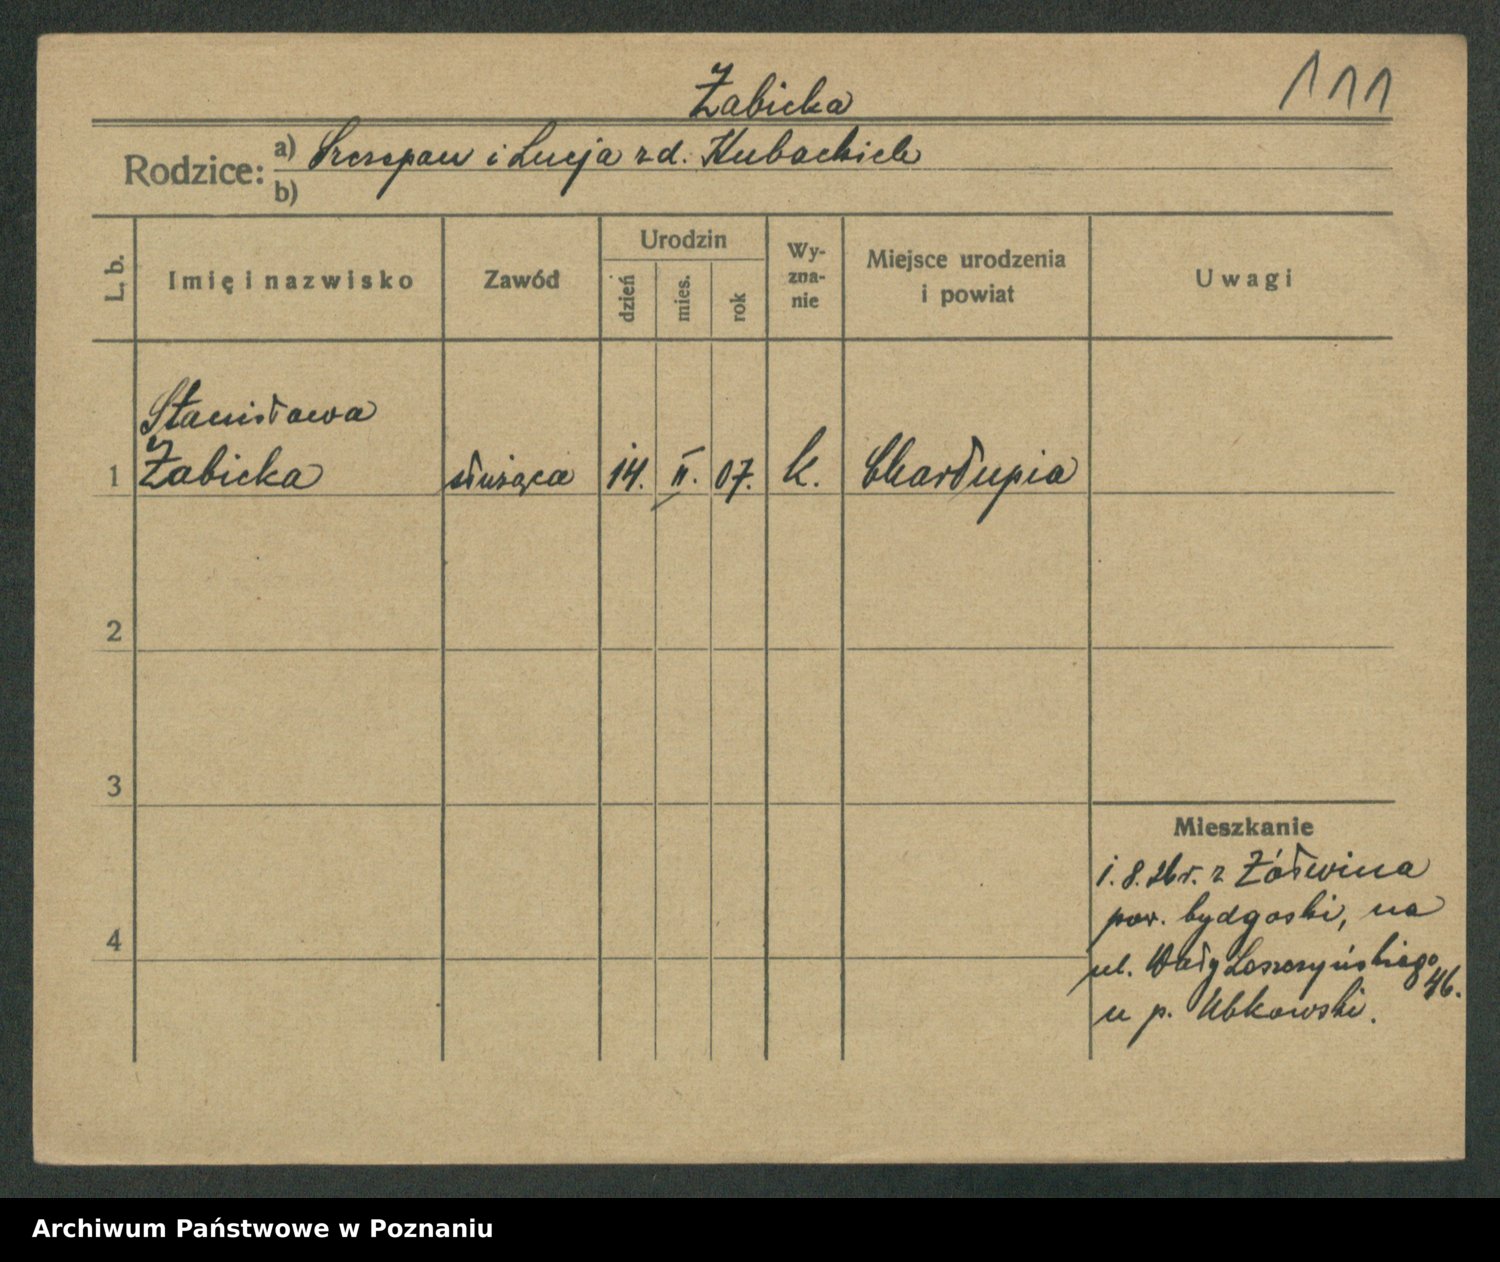 Żabicka
111
Rodzice: a) Szczepan i Łucja z d. Kubackich
b)
L. b.
Imię i nazwisko
Zawód
Urodzin
dzień
mies.
rok
Wy-
zna-
nie
Miejsce urodzenia
i powiat
Uwagi
Stanisława
1 Żabicka służąca 14. II. 07. k. Charłupia
2
3
4
Mieszkanie
1. 8. 26 r. z Żółwina
pow. bydgoski, na
ul. Wały Leszczyńskiego
46.
u p. Ubkowski.
Archiwum Państwowe w Poznaniu